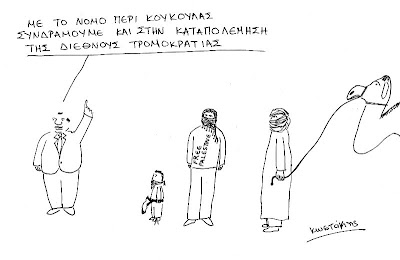 ΜΕ ΤΟ ΝΟΜΟ ΠΕΡΙ ΚΟΥΚΟΥΛΑΣ
ΣΥΝΔΡΑΜΟΥΜΕ ΚΑΙ ΣΤΗΝ ΚΑΤΑΠΟΛΕΜΗΣΗ
ΤΗΣ ΔΙΕΘΝΟΥΣ ΤΡΟΜΟΚΡΑΤΙΑΣ
FREE
PALESTINE